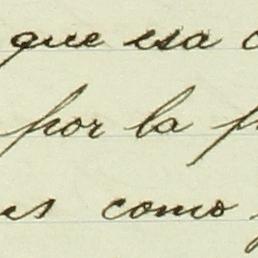 que esa
por la
como